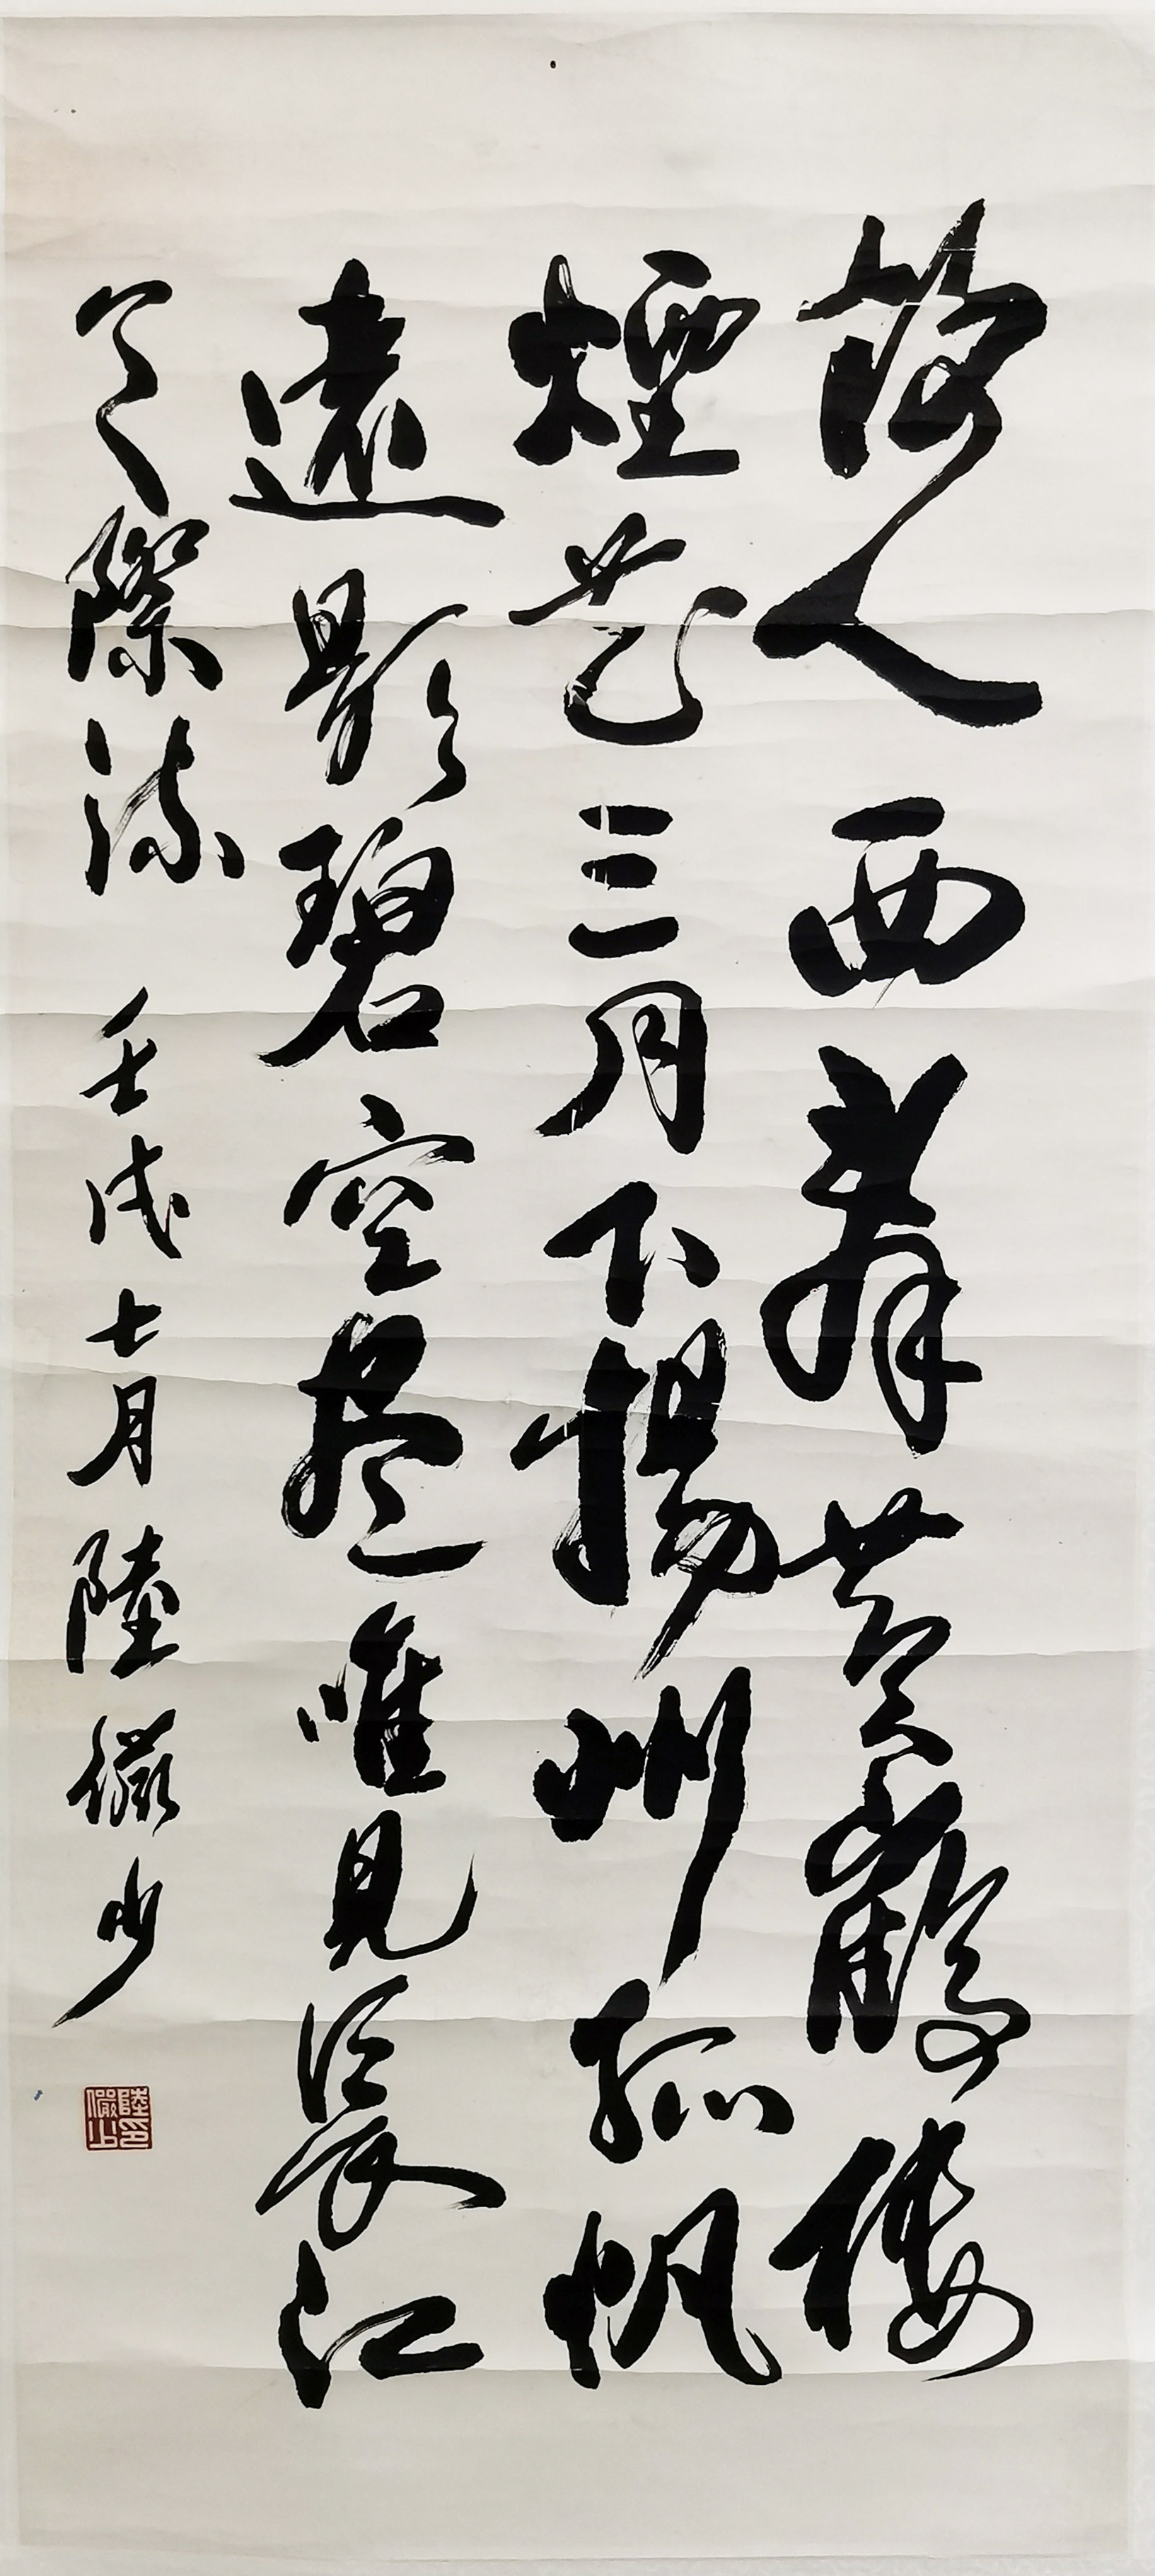 故人西辭黃鶴樓
煙花三月下揚州孤帆
遠影碧空盡唯見長江
天際流 壬戌七月陸儼少
陸印
儼少